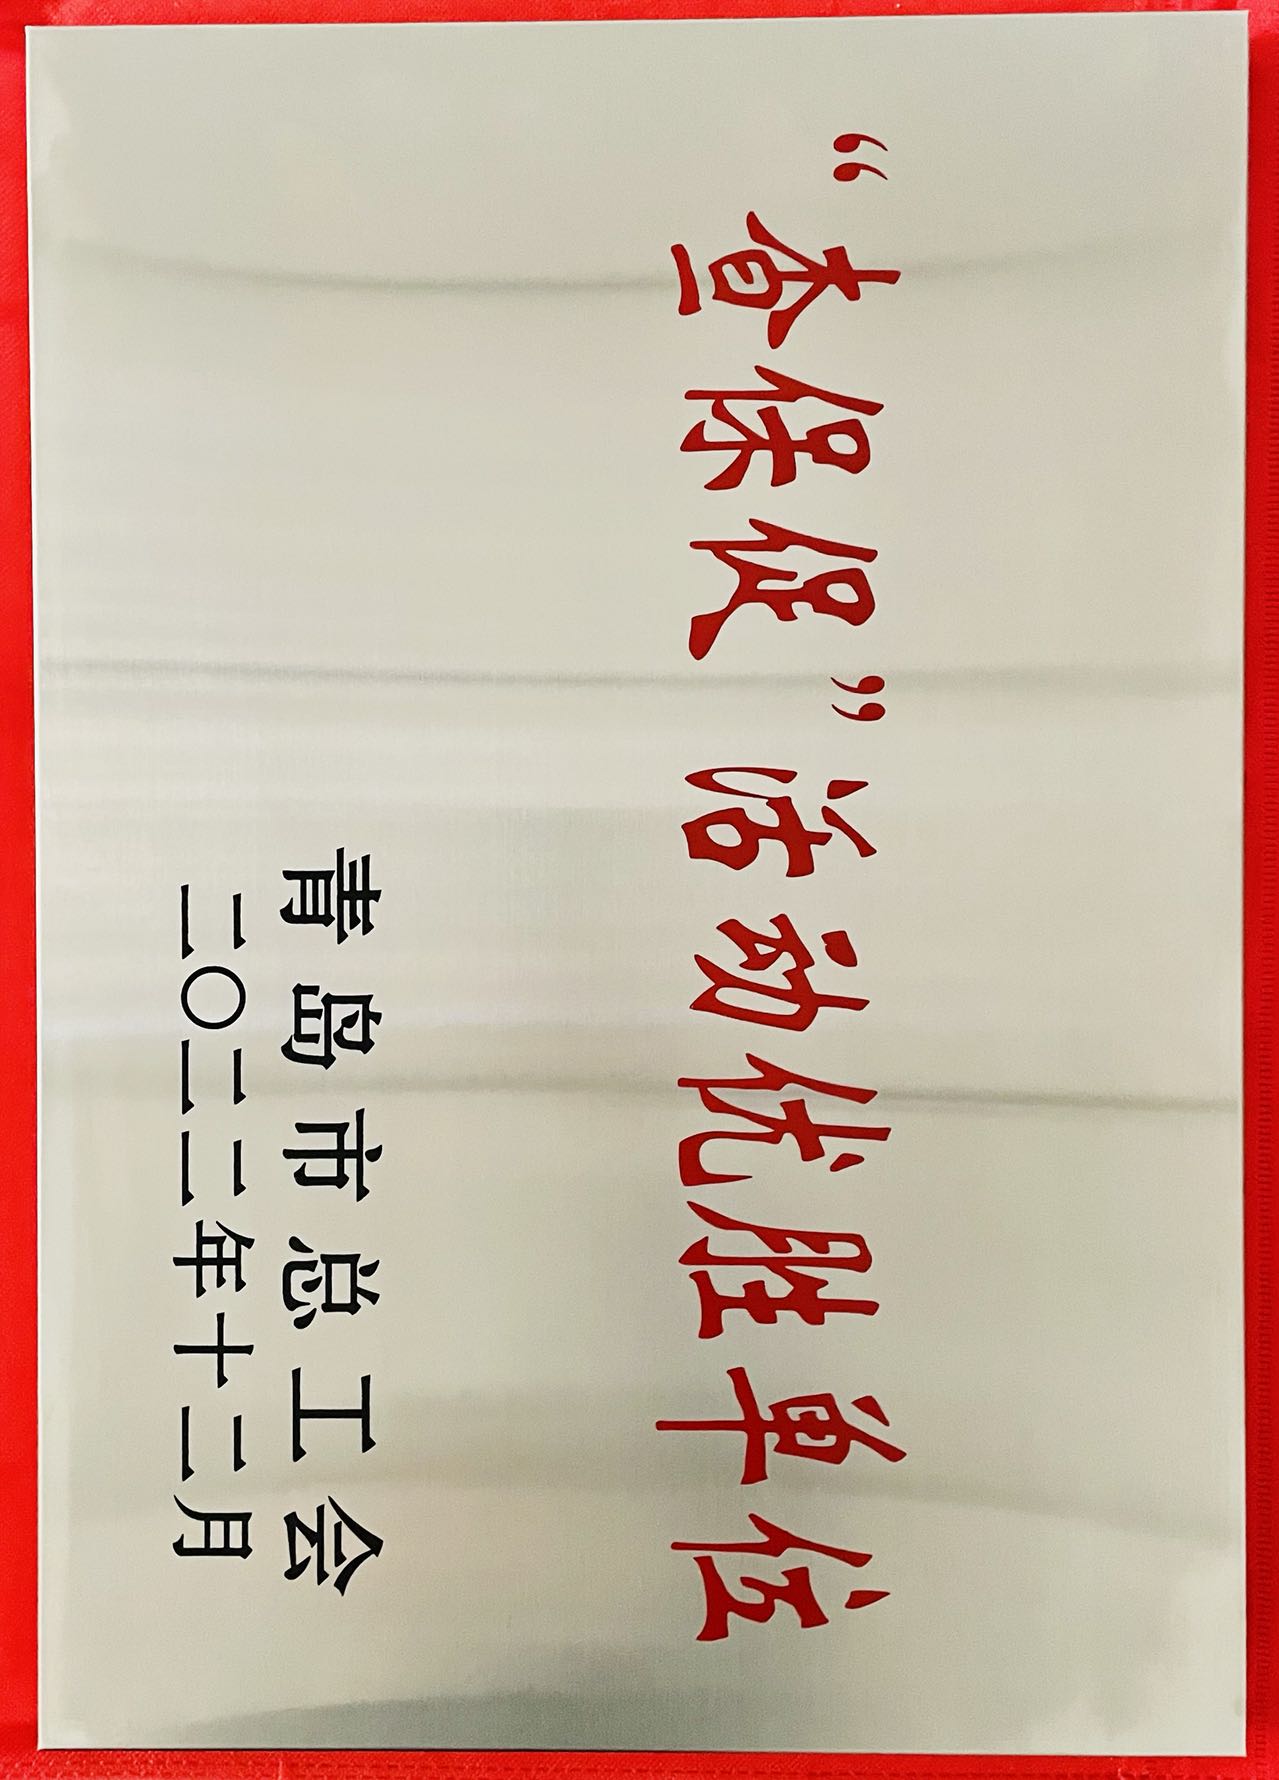 “查保促”活动优胜单位
青岛市总工会
二〇二二年十二月